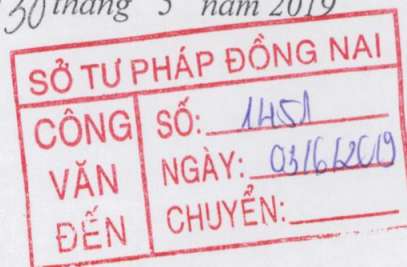 30 tháng 5 năm 2019
SỞ TƯ PHÁP ĐỒNG NAI
CÔNG VĂN ĐẾN
SỐ: 1451
NGÀY: 03/6/2019
CHUYỂN: